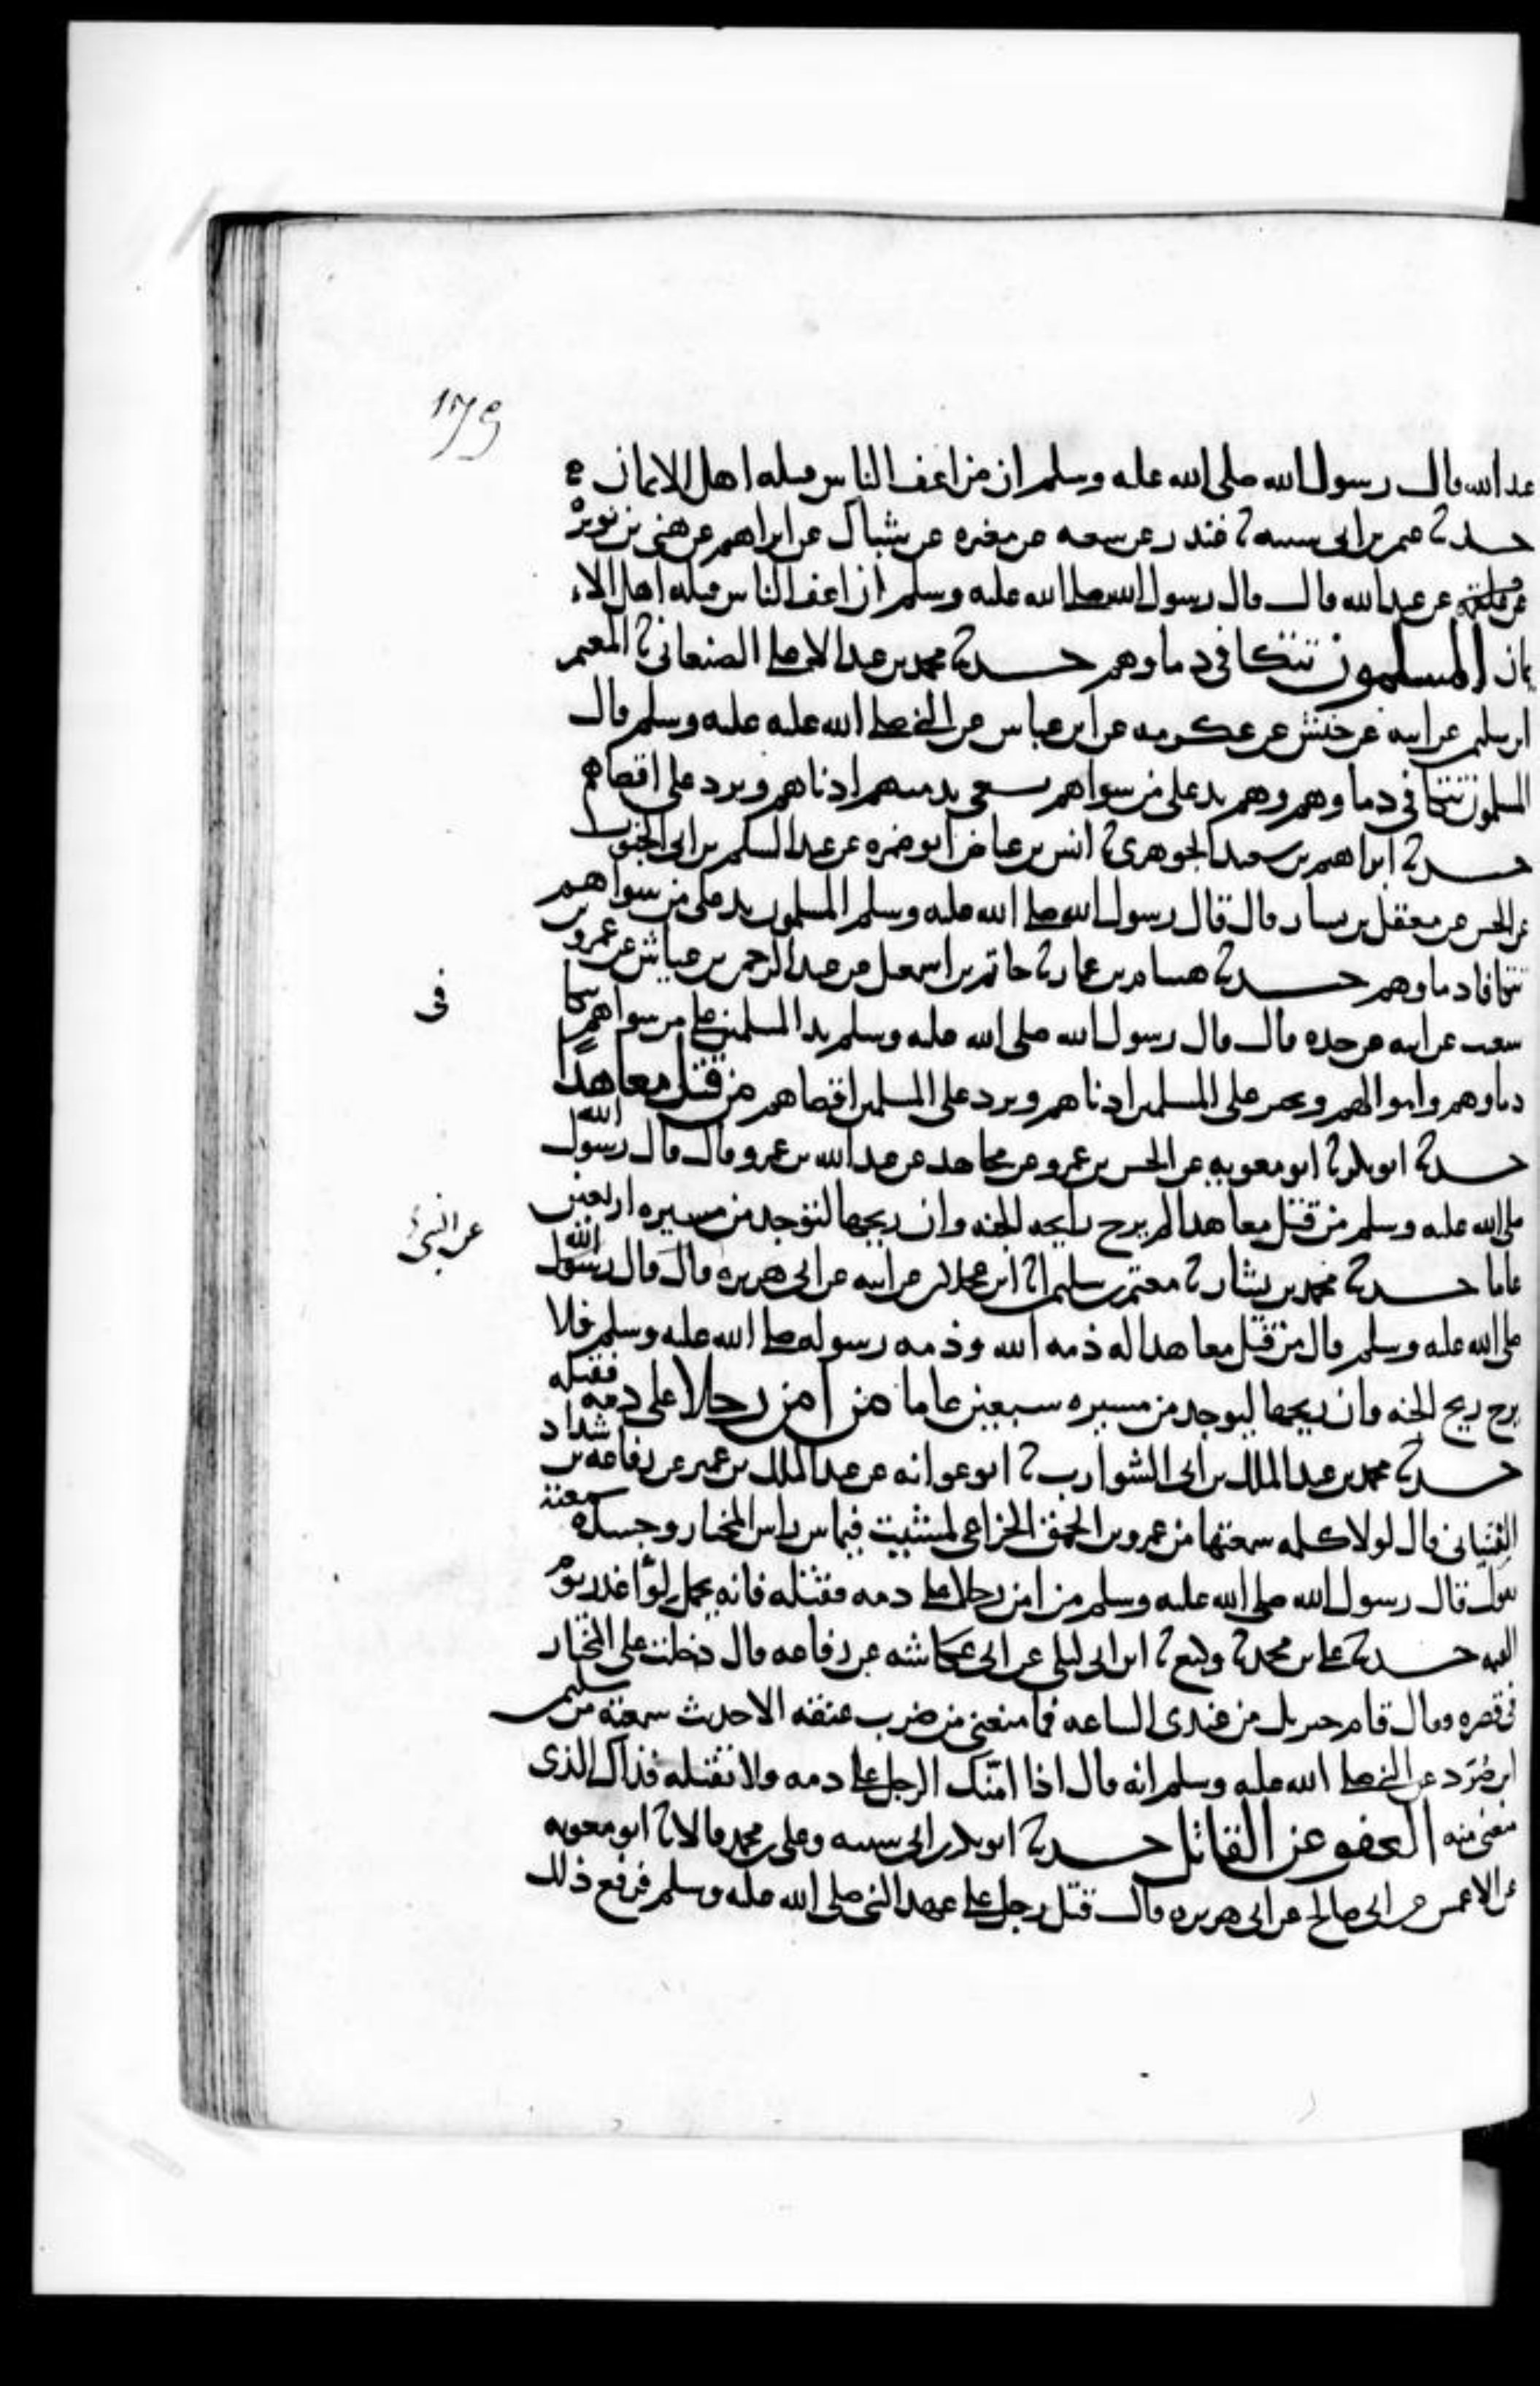 179
عبد الله قال رسول الله صلى الله عليه وسلم ان من اعف الناس قتله اهل الايمان
حدثنا عثمن بن ابي شيبه ثنا غندر عن شعبه عن مغيره عن شباك عن ابراهيم عن هني بن نويره
عن علقمه عن عبد الله قال قال رسول الله صلى الله عليه وسلم ان اعف الناس قتله اهل الا
يمان المسلمون تتكافي دماوهم حدثنا محمد بن عبد الاعلى الصنعاني ثنا المعتمر
ابن سليمن عن ابيه عن حنش عن عكرمه عن ابن عباس عن النبي صلى الله عليه عليه وسلم قال
المسلمون تتكافي دماوهم وهم يد على من سواهم يسعى بذمتهم ادناهم ويرد على اقصاهم
حدثنا ابراهيم بن سعيد الجوهري ثنا انس بن عياض ابو ضمره عن عبد السلم بن ابي الجنوب
عن الحسن عن معقل بن يسار قال قال رسول الله صلى الله عليه وسلم المسلمون يد على من سواهم
تتكافا دماوهم حدثنا هشام بن عمار ثنا حاتم بن اسمعيل عن عبد الرحمن بن عياش عن عمرو بن
في
شعيب عن ابيه عن جده قال قال رسول الله صلى الله عليه وسلم يد المسلمين على من سواهم تتكا
دماوهم واموالهم ويجير على المسلمين ادناهم ويرد على المسلمين اقصاهم من قتل معاهدا
حدثنا ابو بكر ثنا ابو معويه عن الحسن بن عمرو عن مجاهد عن عبد الله بن عمرو قال قال رسول الله
صلى الله عليه وسلم من قتل معاهدا لم يرح رايحه الجنه وان ريحها لتوجد من مسيره اربعين
عن النبي
عاما حدثنا محمد بن بشار ثنا معتمر بن سليمن ثنا ابن عجلان عن ابيه عن ابي هريره قال قال رسول الله
صلى الله عليه وسلم قال من قتل معاهدا له ذمه الله وذمه رسوله صلى الله عليه وسلم فلا
يرح ريح الجنه وان ريحها ليوجد من مسيره سبعين عاما من امن رجلا على دمه فقتله
حدثنا محمد بن عبد الملك بن ابي الشوارب ثنا ابو عوانه عن عبد الملك بن عمير عن رفاعه بن شداد
الفتياني قال لولا كلمه سمعتها من عمرو بن الحمق الخزاعي لمشيت فيما بين راس المختار وجسده سمعته
يقول قال رسول الله صلى الله عليه وسلم من امن رجلا على دمه فقتله فانه يحمل لوا غدر يوم
القيمه حدثنا علي بن محمد ثنا وكيع ثنا ابن ابي ليلى عن ابي عكاشه عن رفاعه قال دخلت على المختار
في قصره وقال قام جبريل من عندي الساعه فما منعني من ضرب عنقه الا حديث سمعته من سليمن
ابن صُرَد عن النبي صلى الله عليه وسلم انه قال اذا امّنك الرجل على دمه ولا تقتله فذاك الذي
منعني منه العفو عن القاتل حدثنا ابو بكر بن ابي شيبه وعلي بن محمد قالا ثنا ابو معويه
عن الاعمش عن ابي صالح عن ابي هريره قال قتل رجل على عهد النبي صلى الله عليه وسلم فرفع ذلك